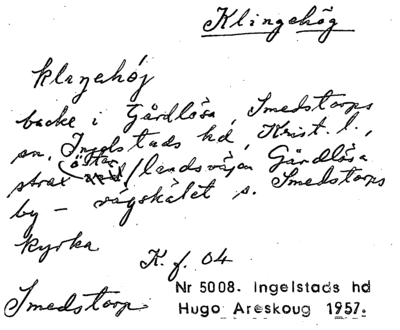 Klingehög
klejehöj
backe i Gårdlösa, Smedstorps
sn, Ingelstads hd, Krist. l.,
strax öster /landsväjen Gårdlösa
by – vägskälet s. Smedstorps
kyrka
K. f. 04
Nr 5008. Ingelstads hd
Smedstorp
Hugo Areskoug 1957.